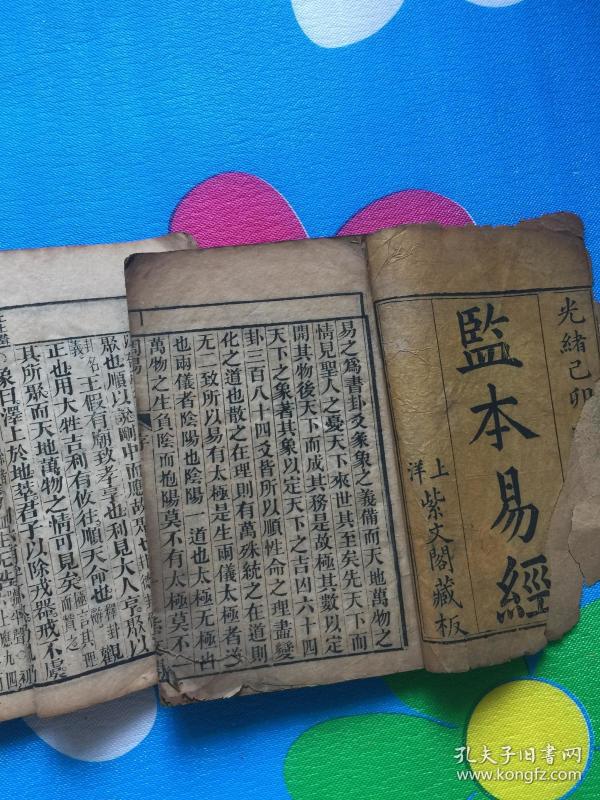 光緒己卯
監本易經
上洋
紫文閣藏板
易之爲書卦爻彖象之義備而天地萬物之
情見聖人之憂天下來世其至矣先天下而
開其物後天下而成其務是故極其數以定
天下之象著其象以定天下之吉凶六十四
卦三百八十四爻皆所以順性命之理盡變
化之道也散之在理則有萬殊統之在道則
无二致所以易有太極是生兩儀太極者道
也兩儀者陰陽也陰陽一道也太極无極也
萬物之生負陰而抱陽莫不有太極莫不
聚也順以說剛中而應故聚也
卦名義
王假有廟致孝享也利見大人亨聚以
正也用大牲吉利有攸往順天命也
釋卦
觀
其所聚而天地萬物之情可見矣
極言其理而贊之
象曰澤上於地萃君子以除戎器戒不虞
孔夫子旧书网
www.kongfz.com